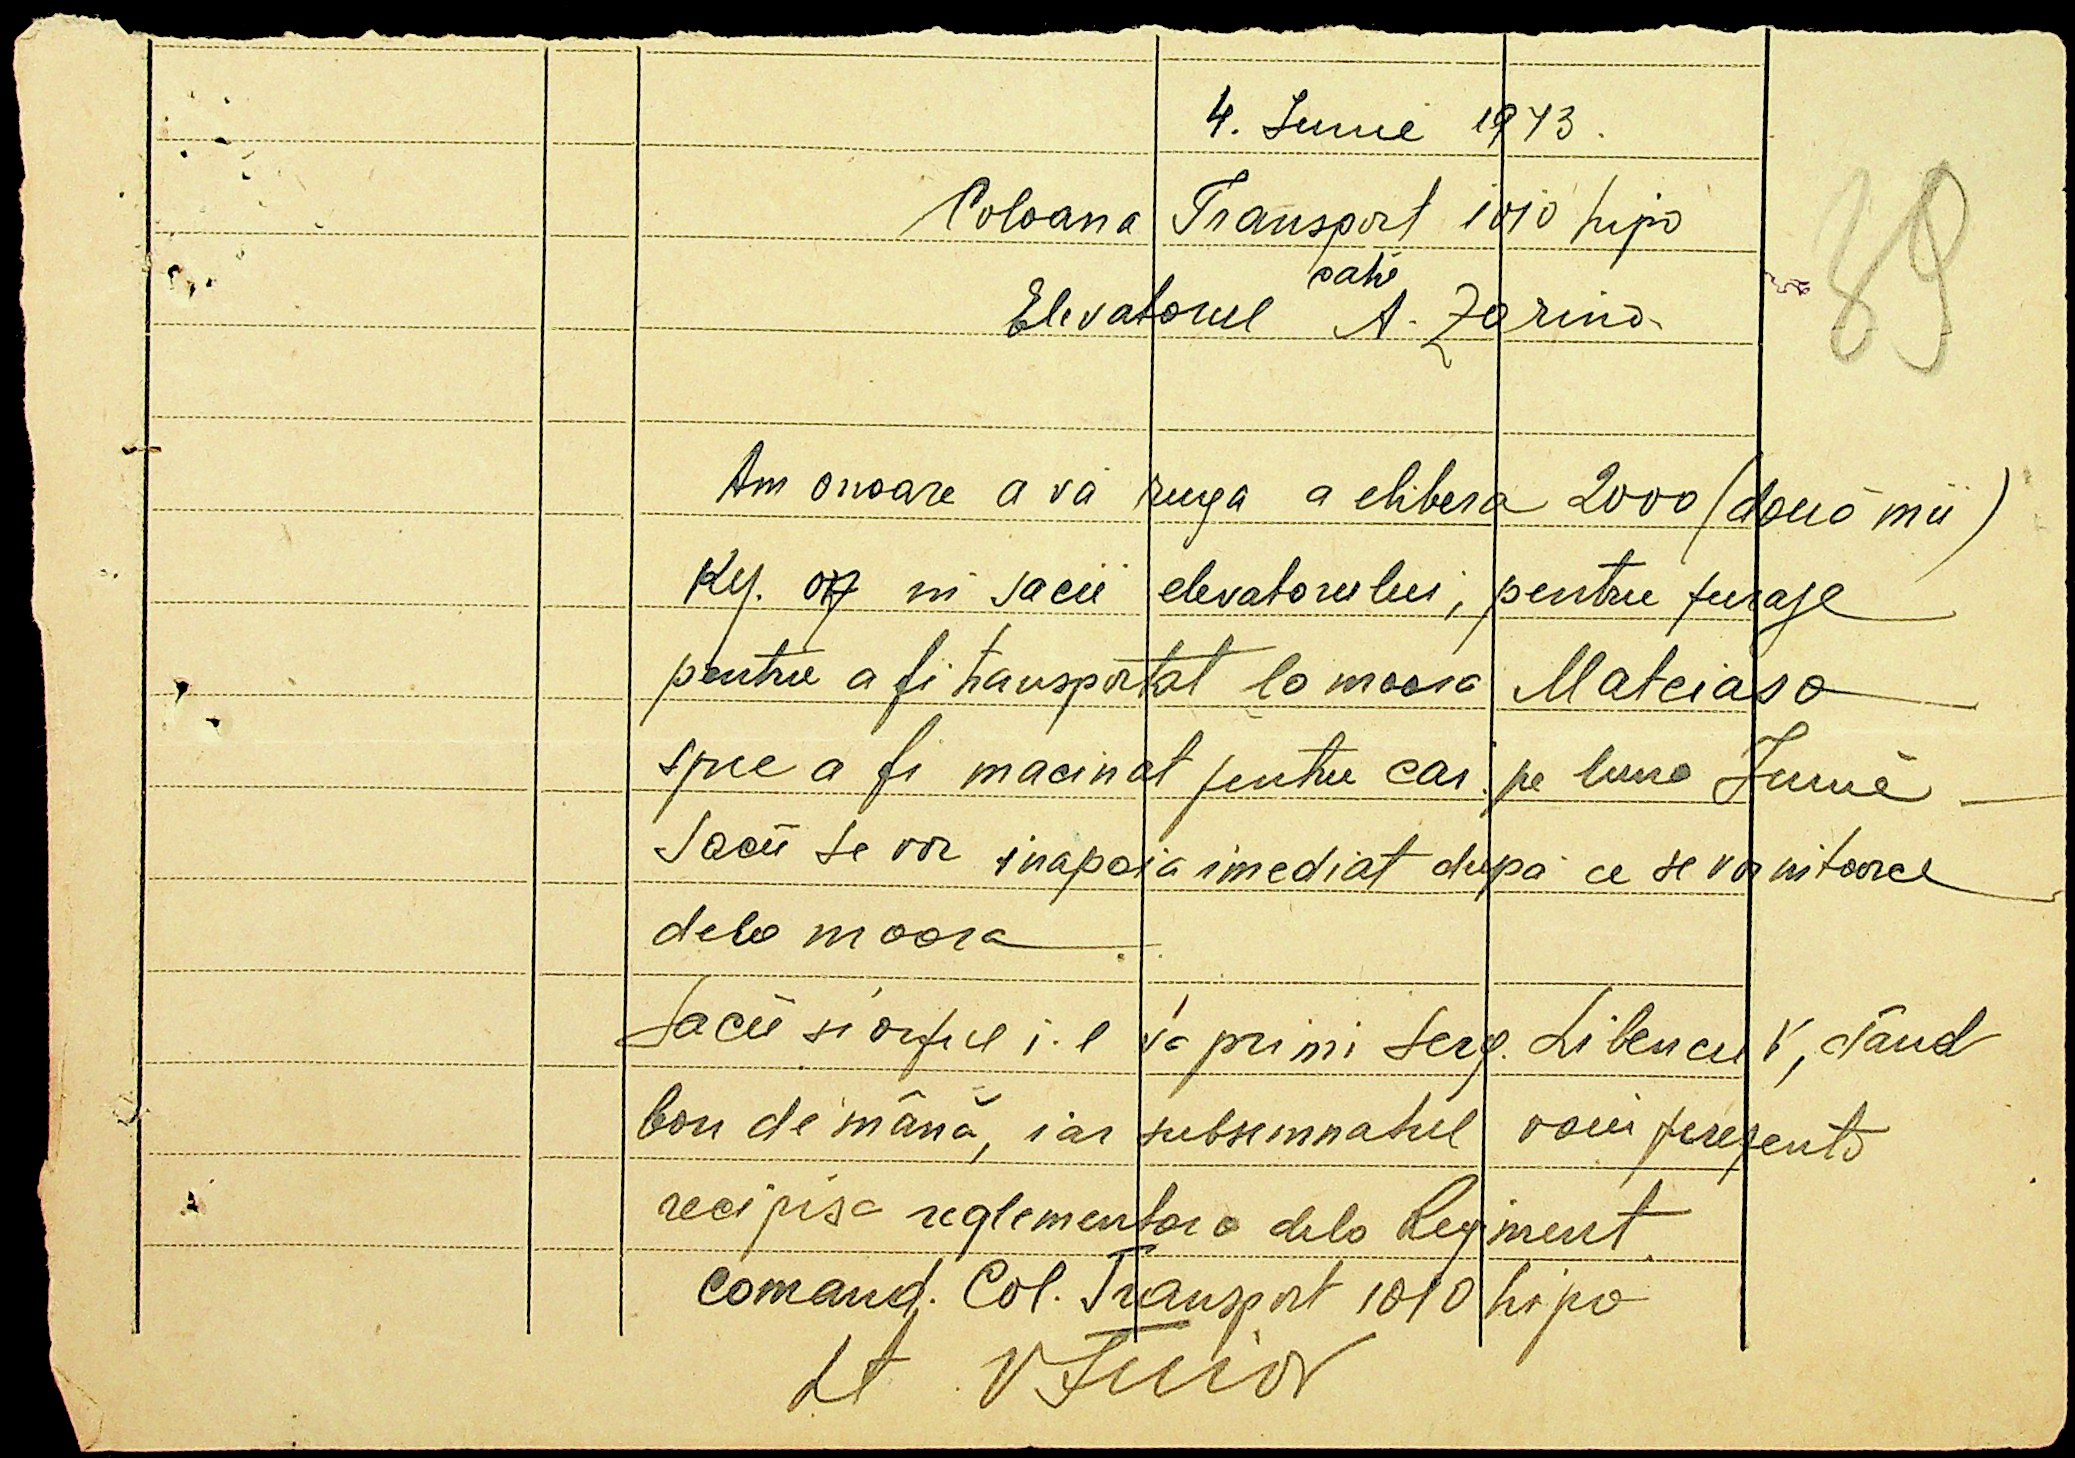 4. Iunie 1943.
89
Coloana Transport 1010 hipo
catre
Elevatorul A. Zorino
Am onoare a vă ruga a elibera 2000 (două mii)
Kg. orz in sacii elevatorului, pentru furaje
pentru a fi transportat la moara Mateiasa
spre a fi macinat pentru cai pe luna Iunie
Sacii se vor inapoia imediat după ce se vor intoarce
dela moara
Sacii si orzul i-l va primi Serg. Libencu V, dând
bon de mână, iar subsemnatul voiu prezenta
recipisa reglementara dela Regiment.
Comand. Col. Transport 1010 hipo
Lt